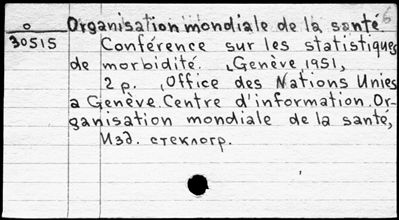 o Organisation mondiale de la santé 6
30515 Conférence sur les statistiques
de morbidité. Genève, 1951,
2 p. , Office des Nations Unies
a Genève. Centre d'information. Or-
ganisation mondiale de la santé,
Изд. стеклогр.